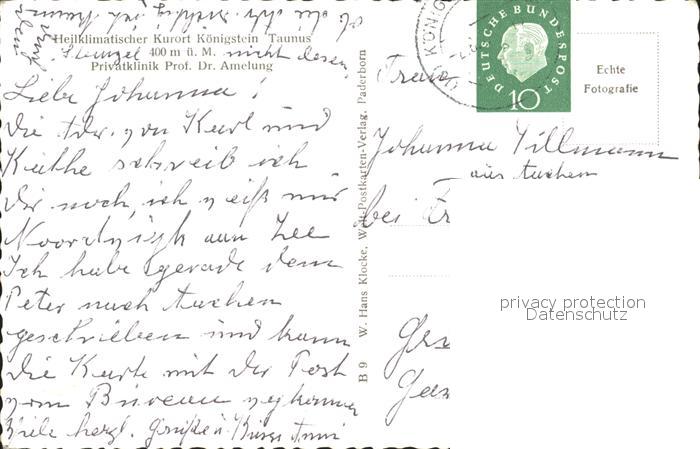 ob die
Heilklimatischer Kurort Königstein Taunus
Stempel 400 m ü. M. nicht lesen
Privatklinik Prof. Dr. Amelung
Liebe Johanna!
Die Adr. von Karl und
Käthe schreib ich
Dir noch, ich weiß nur
Noordwijk aan Zee
Ich habe gerade dem
Peter nach Aachen
geschrieben und kann
die Karte mit der Post
vom Büreau
Viele herzl. Grüße u. Küsse
B 9 W. Hans Klocke, Welt-Postkarten-Verlag, Paderborn
KÖNIG
DEUTSCHE BUNDESPOST
10
Echte
Fotografie
Frau
Johanna Tillmann
aus Aachen
bei Fr
privacy protection
Datenschutz